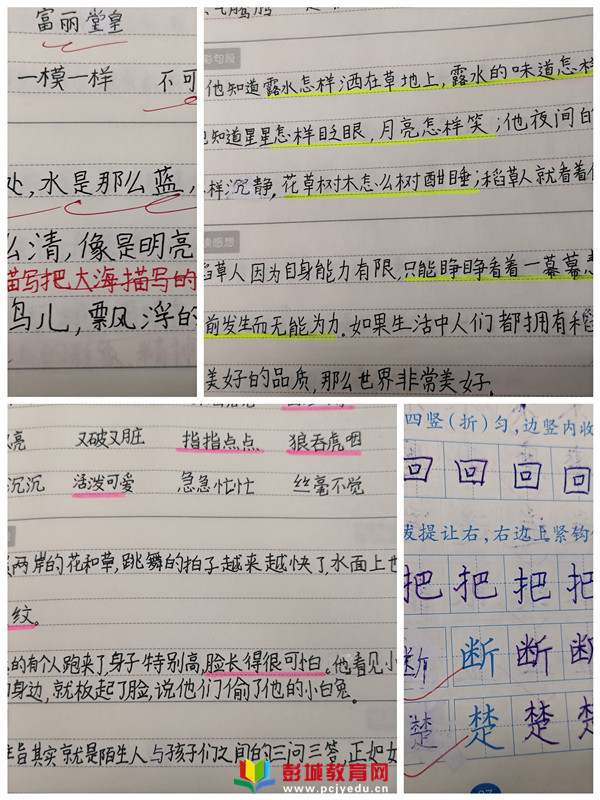 富丽堂皇
一模一样 不可
处,水是那么蓝,
么清,像是明亮
描写把大海描写的
鸟儿,飘浮的
彩句段
他知道露水怎样洒在草地上,露水的味道怎样
知道星星怎样眨眼,月亮怎样笑;他夜间的
样沉静,花草树木怎么树酣睡;稻草人就看着
读感想
稻草人因为自身能力有限,只能睁睁看着一幕幕悲
前发生而无能为力.如果生活中人们都拥有稻
美好的品质,那么世界非常美好.
亮 又破又脏 指指点点 狼吞虎咽
沉沉 活泼可爱 急急忙忙 丝毫不觉
两岸的花和草,跳舞的拍子越来越快了,水面上也
纹。
的有个人跑来了,身子特别高,脸长得很可怕。他看见小
身边,就板起了脸,说他们偷了他的小白兔。
其实就是陌生人与孩子们之间的三问三答,正如女
四竖(折)匀,边竖内收
回 回 回 回
提让右,右边上紧钩
把 把 把 把
断 断 断 断
楚 楚 楚 楚
彭城教育网
www.pcjyedu.cn